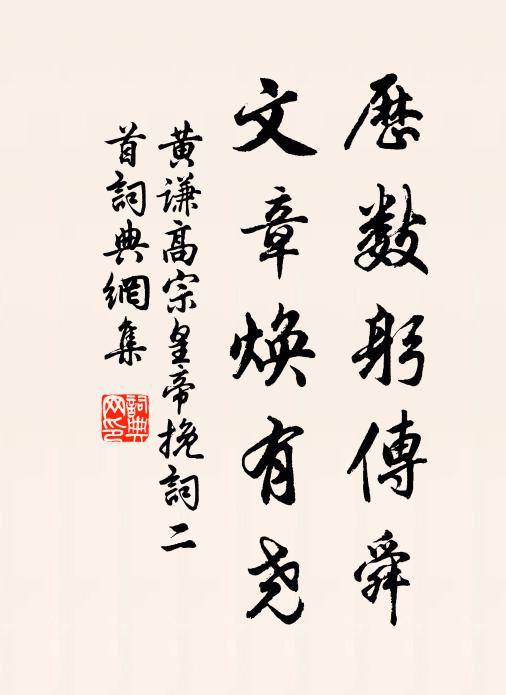 歷數躬傳舜
文章煥有尧
黄谦高宗皇帝挽詞二
首詞典網集
詞典
网印